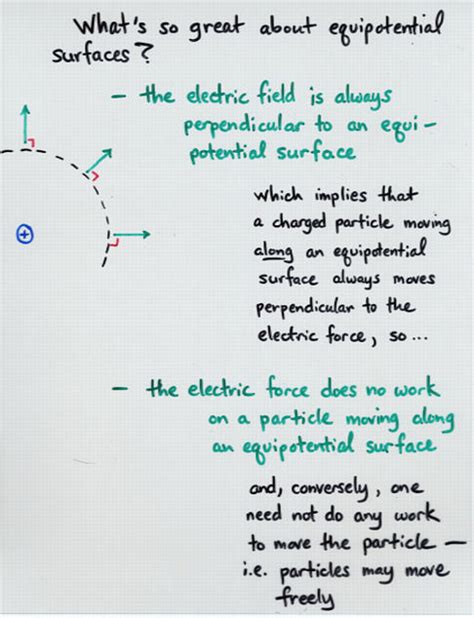 What's so great about equipotential
surfaces?
– the electric field is always
perpendicular to an equi-
potential surface
which implies that
a charged particle moving
along an equipotential
surface always moves
perpendicular to the
electric force, so ...
+
– the electric force does no work
on a particle moving along
an equipotential surface
and, conversely, one
need not do any work
to move the particle —
i.e. particles may move
freely